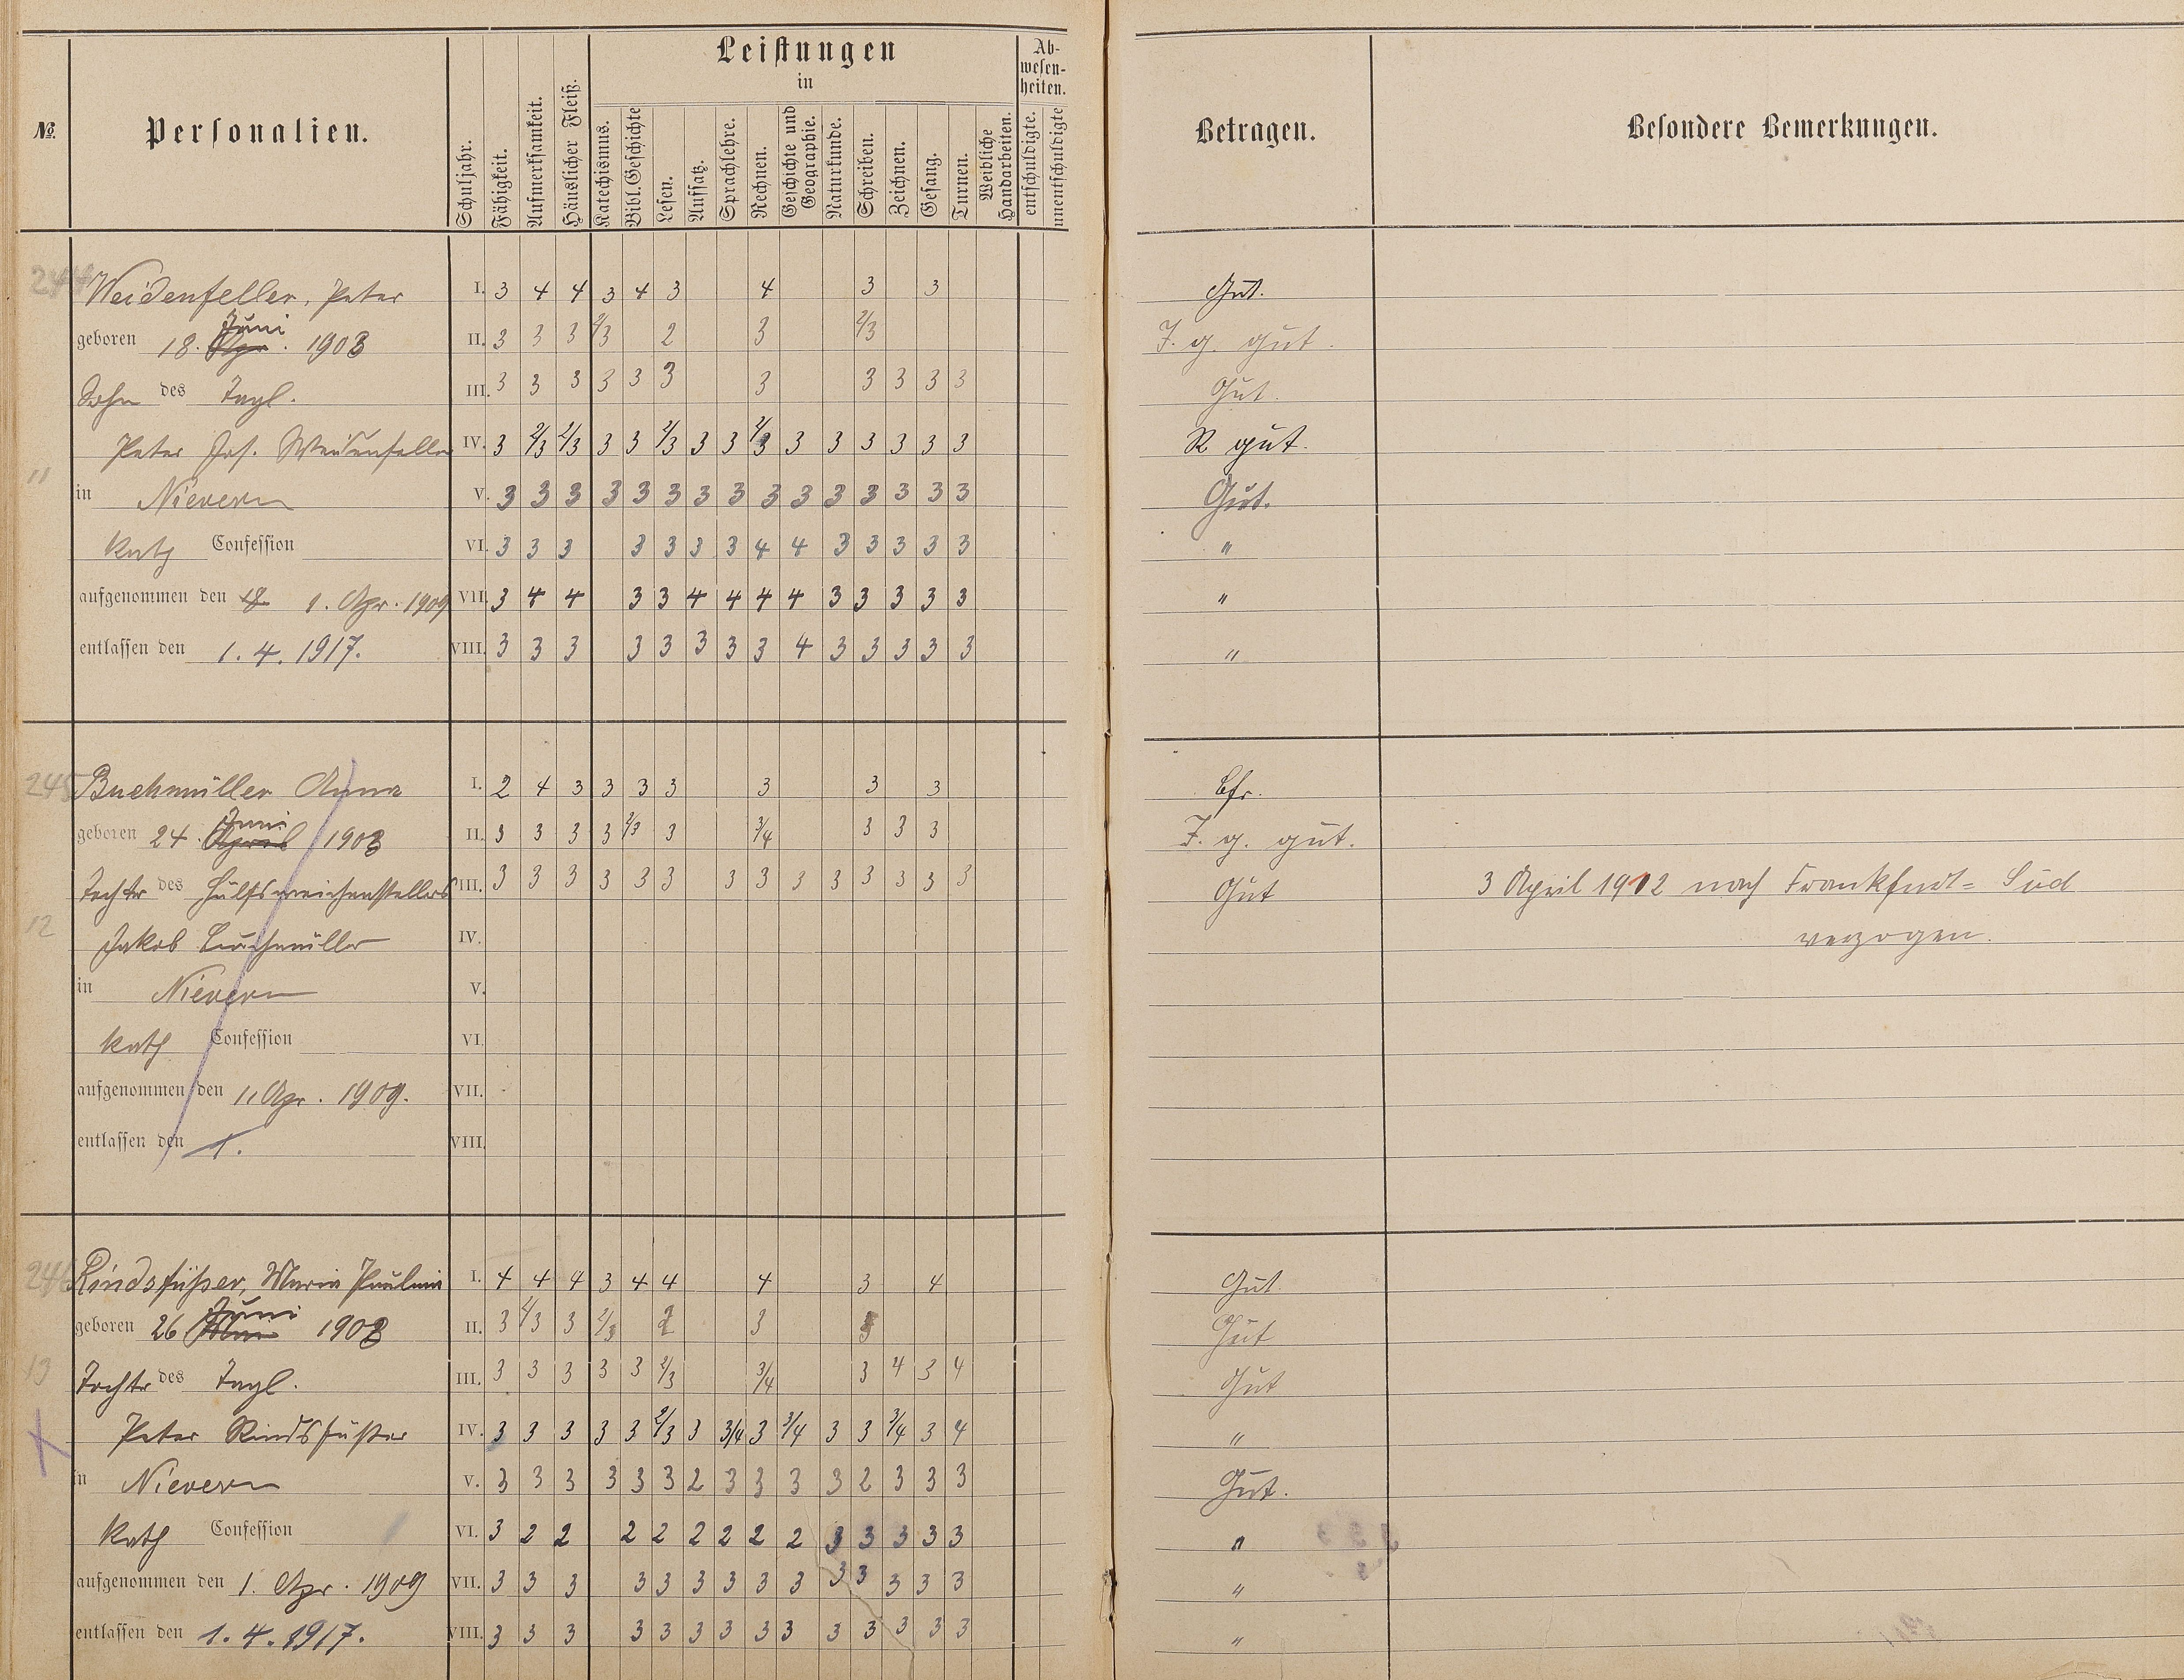 №.
Personalien.
Schuljahr.
Fähigkeit.
Aufmerksamkeit.
Häuslicher Fleiß.
Leistungen
in
Katechismus.
Bibl. Geschichte
Lesen.
Aufsatz.
Sprachlehre.
Rechnen.
Geschichte und Geographie.
Naturkunde.
Schreiben.
Zeichnen.
Gesang.
Turnen.
Weibliche Handarbeiten.
Ab-
wesen-
heiten.
entschuldigte.
unentschuldigte
Betragen.
Besondere Bemerkungen.
244 Weidenfeller, Peter I. 3 4 4 3 4 3 4 3 3 Gut.
Juni
geboren 18. Apr. 1903 II. 3 3 3 2/3 2 3 2/3 I. g. gut.
Sohn des Tagl. III. 3 3 3 3 3 3 3 3 3 3 3 Gut.
Peter Jos. Weidenfeller IV. 3 2/3 2/3 3 3 2/3 3 3 2/3 3 3 3 3 3 3 R gut.
11
in Nievern V. 3 3 3 3 3 3 3 3 3 3 3 3 3 3 3 Gut.
Kath Confession VI. 3 3 3 3 3 3 3 4 4 3 3 3 3 3 "
aufgenommen den 18 1. Apr. 1909 VII. 3 4 4 3 3 4 4 4 4 3 3 3 3 3 "
entlassen den 1. 4. 1917. VIII. 3 3 3 3 3 3 3 3 4 3 3 3 3 3 "
245 Buchmüller Anna I. 2 4 3 3 3 3 3 3 3 Bfr.
Juni
geboren 24. April 1903 II. 3 3 3 3 2/3 3 3/4 3 3 3 I. g. gut.
Tochter des Hülfsweichenstellers III. 3 3 3 3 3 3 3 3 3 3 3 3 3 3 Gut 3 April 1912 nach Frankfurt-Süd
12
Jakob Buchmüller IV. verzogen.
in Nievern V.
kath Confession VI.
aufgenommen den 1. Apr. 1909. VII.
entlassen den 1. VIII.
246 Rindsfüßer, Maria Paulina I. 4 4 4 3 4 4 4 3 4 Gut.
Juni
geboren 26 1903 II. 3 2/3 3 2/3 2 3 3 Gut
13
Tochter des Tagl. III. 3 3 3 3 3 2/3 3/4 3 4 3 4 Gut
Peter Rindsfüßer IV. 3 3 3 3 3 2/3 3 3/4 3 3/4 3 3 3/4 3 4 "
in Nievern V. 3 3 3 3 3 3 2 3 3 3 3 2 3 3 3 Gut.
Kath Confession VI. 3 2 2 2 2 2 2 2 2 3 3 3 3 3 "
aufgenommen den 1. Apr. 1909 VII. 3 3 3 3 3 3 3 3 3 3 3 3 3 3 "
entlassen den 1. 4. 1917. VIII. 3 3 3 3 3 3 3 3 3 3 3 3 3 3 "